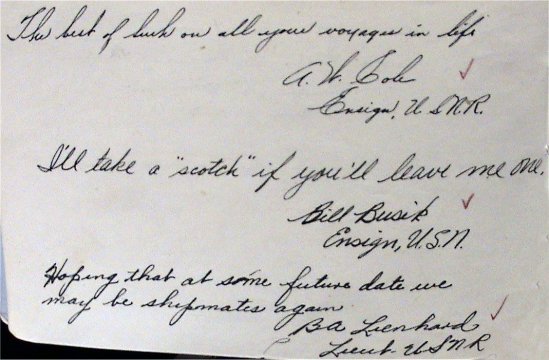 The best of luck on all your voyages in life
A. W. Cole
Ensign, USNR.
I'll take a "scotch" if you'll leave me one.
Bill Busik
Ensign, U.S.N.
Hoping that at some future date we
may be shipmates again
BA Lienhard
Lieut USNR